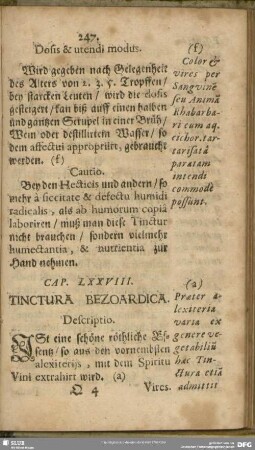 247.
Dosis & utendi modus.
Wird gegeben nach Gelegenheit
des Alters von 2. 3. 5. Tropffen/
bey starcken Leuten / wird die dosis
gesteigert / kan biß auff einen halben
und gantzen Scrupel in einer Brüh/
Wein oder destillirtem Wasser/ so
dem affectui appropriirt, gebraucht
werden. (f)
Cautio.
Bey den Hecticis und andern/ so
mehr à siccitate & defectu humidi
radicalis, als ab humorum copiâ
laboriren / muß man diese Tinctur
nicht brauchen / sondern vielmehr
humectantia, & nutrientia zur
Hand nehmen.
(f)
Color &
vires per
Sangvinẽ
seu Animã
Rhabarba-
ri cum aq.
cichor. tar-
tarisatâ
paratam
intendi
commodè
possunt.
CAP. LXXVIII.
TINCTURA BEZOARDICA.
Descriptio.
ISt eine schöne röthliche Es-
sentz/ so aus den vornembsten
alexiteriis, mit dem Spiritu
Vini extrahirt wird. (a)
(a)
Præter a-
lexiteria
varia ex
genere ve-
getabiliũ
hæc Tin-
ctura etiã
admittit
Q 4
Vires.